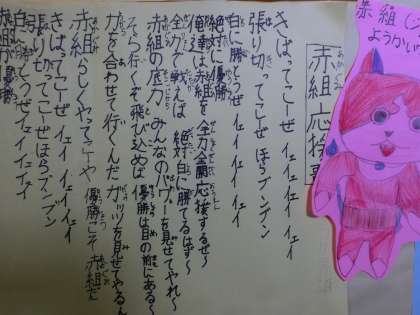 赤組
ようかい
赤組応援歌
きばってこーぜ イェイ イェイ イェイ イェイ
張り切ってこーぜ ほらブンブン
白に勝とうぜ イェイ イェイ イェイ
絶対に優勝
俺達は赤組を全力全開応援するぜ〜
全力で戦えば 絶対白に勝てるはず〜
赤組の底力 みんなのパワーを見せてやれ〜
そら行くぞ飛び込めば 優勝は目の前にある〜
力を合わせて行くんだ ガッツを見せてやるん
赤組らしくやってこーや 優勝こそ 赤組だ
きばってこーぜ イェイ イェイ イェイ イェイ
張り切ってこーぜほらブンブン
白に勝とうぜイェイイェイイェイ
赤組が優勝